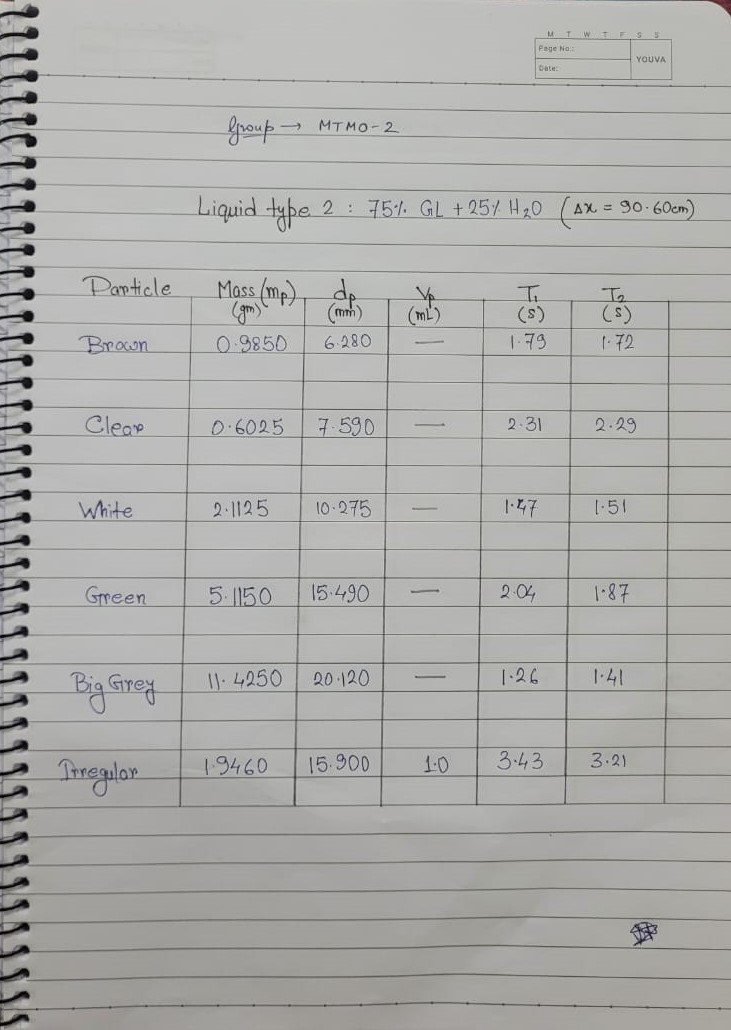 M T W T F S S
Page No.:
YOUVA
Date:
Group → MTMO-2
Liquid type 2 : 75% GL + 25% H2O (Δx = 90.60cm)
Particle Mass (mp) dp Vp T1 T2
(gm) (mm) (mL) (s) (s)
Brown 0.9850 6.280 — 1.79 1.72
Clear 0.6025 7.590 — 2.31 2.29
White 2.1125 10.275 — 1.47 1.51
Green 5.1150 15.490 — 2.04 1.87
Big Grey 11.4250 20.120 — 1.26 1.41
Irregular 1.9460 15.900 1.0 3.43 3.21